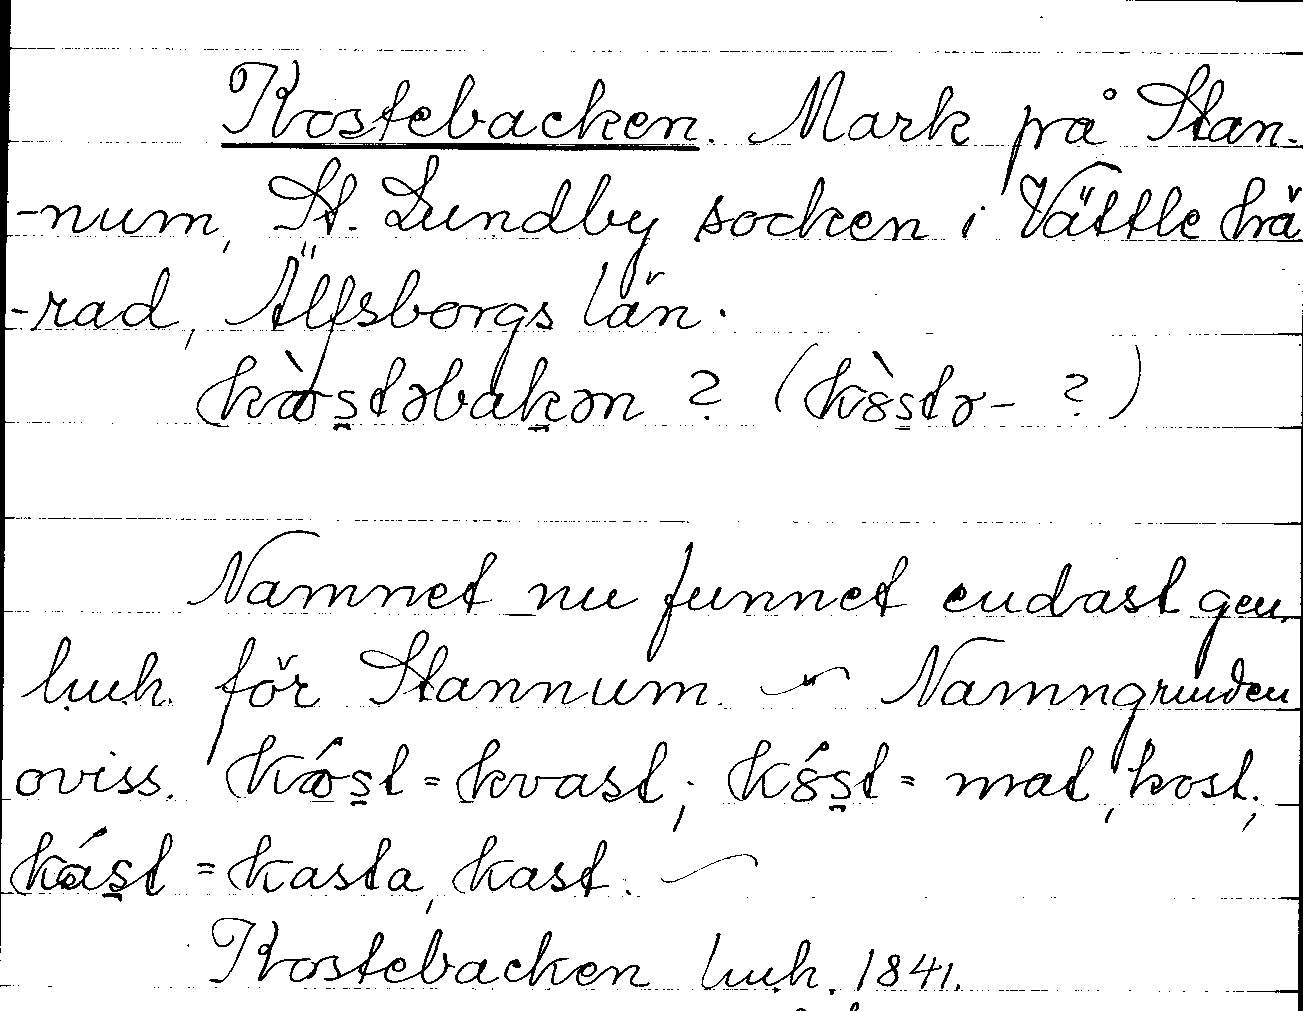 Kostebacken. Mark på Stan-
-num, St. Lundby socken i Vättle hä
-rad, Älfsborgs län.
kòstəbakən ? (kòstə- ?)
Namnet nu funnet endast gen.
luk. för Stannum. Namngrunden
oviss. kóst = kvast; kóst = mat, kost;
kást = kasta, kast.
Kostebacken luk. 1841.